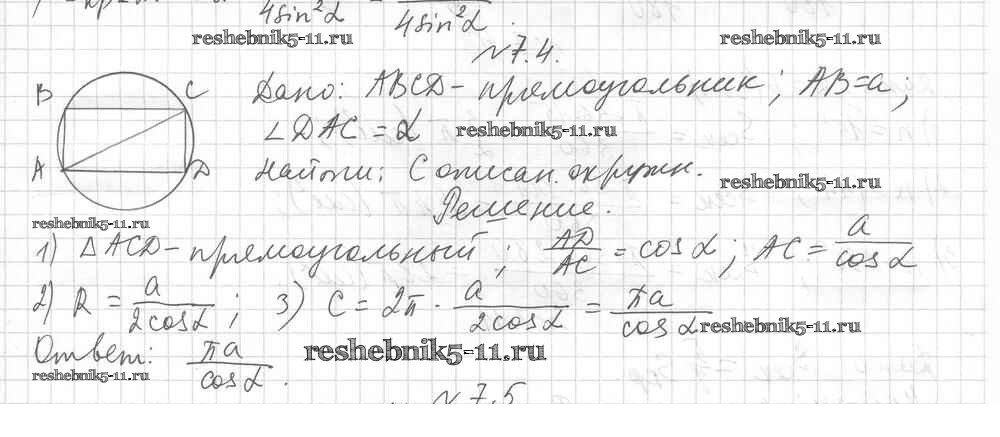 4sin²α 4sin²α.
reshebnik5-11.ru reshebnik5-11.ru
№7.4.
B C Дано: ABCD – прямоугольник; AB=a;
∠DAC = α reshebnik5-11.ru
A D Найти: C описан. окружн. reshebnik5-11.ru
reshebnik5-11.ru Решение.
1) △ACD – прямоугольный; AD/AC = cosα; AC = a/cosα
2) R = a/2cosα; 3) C = 2π · a/2cosα = πa/cosα reshebnik5-11.ru
Ответ: πa/cosα. reshebnik5-11.ru
reshebnik5-11.ru
№7.5